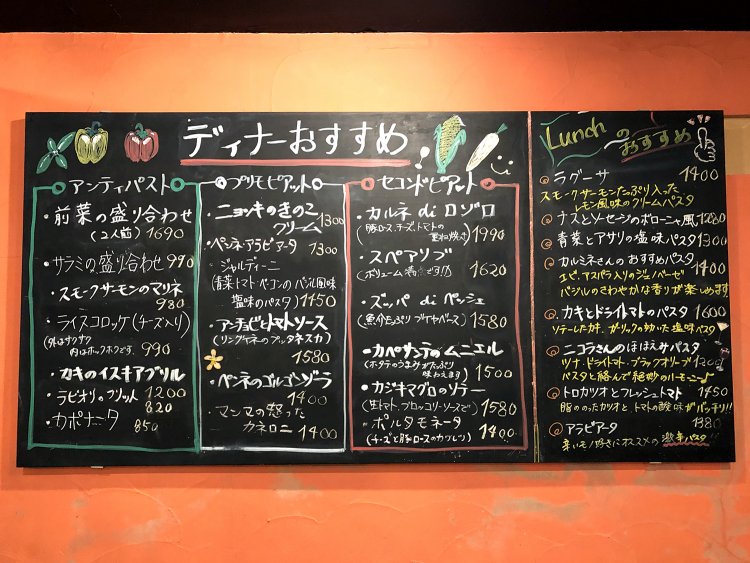 ディナーおすすめ
アンティパスト
・前菜の盛り合わせ
(2人前) 1690
・サラミの盛り合わせ 990
・スモークサーモンのマリネ
980
・ライスコロッケ(チーズ入り)
(外はサクサク
内はホックホクです。 990
・カキのイスキアブリル
・ラビオリ・フリット 1200
820
・カポナータ 850
プリモピアット
・ニョッキのきのこ
クリーム 1300
・ペンネアラビアータ
1300
・ジャルディーニ
(青菜トマトベーコンのバジル風味
塩味のパスタ) 1450
・アンチョビとトマトソース
(リングイネのプッタネスカ)
1580
・ペンネのゴルゴンゾーラ
1400
・マンマの怒った
カネロニ 1400
セコンドピアット
・カルネ di ロゾロ
(豚ロース、チーズ、トマトの
重ね焼き) 1990
・スペアリブ
(ボリューム満点です!!) 1620
・ズッパ di ペッシェ
(魚介たっぷりブイヤベース) 1580
・カペサンテのムニエル
(ホタテのうまみがたっぷり
味わえます) 1500
・カジキマグロのソテー
(生トマト、ブロッコリーソースで) 1580
・ポルタモネータ
(チーズと豚ロースのカツレツ) 1400
Lunchのおすすめ
ラグーサ 1400
スモークサーモンたっぷり入った
レモン風味のクリームパスタ
ナスとソーセージのボローニャ風 1280
青菜とアサリの塩味パスタ 1300
カルミネさんのおすすめパスタ
1400
エビ、アスパラ入りのジェノベーゼ
バジルのさわやかな香りが楽しめます
カキとドライトマトのパスタ 1600
ソテーしたカキ、ガーリックの効いた塩味パスタ
ニコラさんのほほえみパスタ
ツナ、ドライトマト、ブラックオリーブ
パスタと絡んで絶妙のハーモニー♪
トロカツオとフレッシュトマト 1450
脂ののったカツオとトマトの酸味がバッチリ!!
アラビアータ 1380
辛いモノ好きにオススメの激辛パスタ